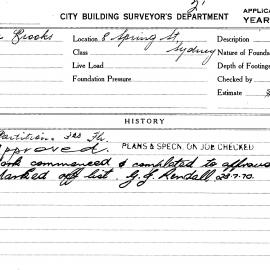 2'
CITY BUILDING SURVEYOR'S DEPARTMENT
APPLICA
YEAR
Crooks
Location 8 Spring St,
Description
Class Sydney
Nature of Founda
Live Load
Depth of Footings
Foundation Pressure
Checked by
Estimate
HISTORY
Partition. 3rd Flr.
Approved. PLANS & SPECN. ON JOB CHECKED
Work commenced & completed to approval
Marked off list. G. J. Kendall 28.7.70.